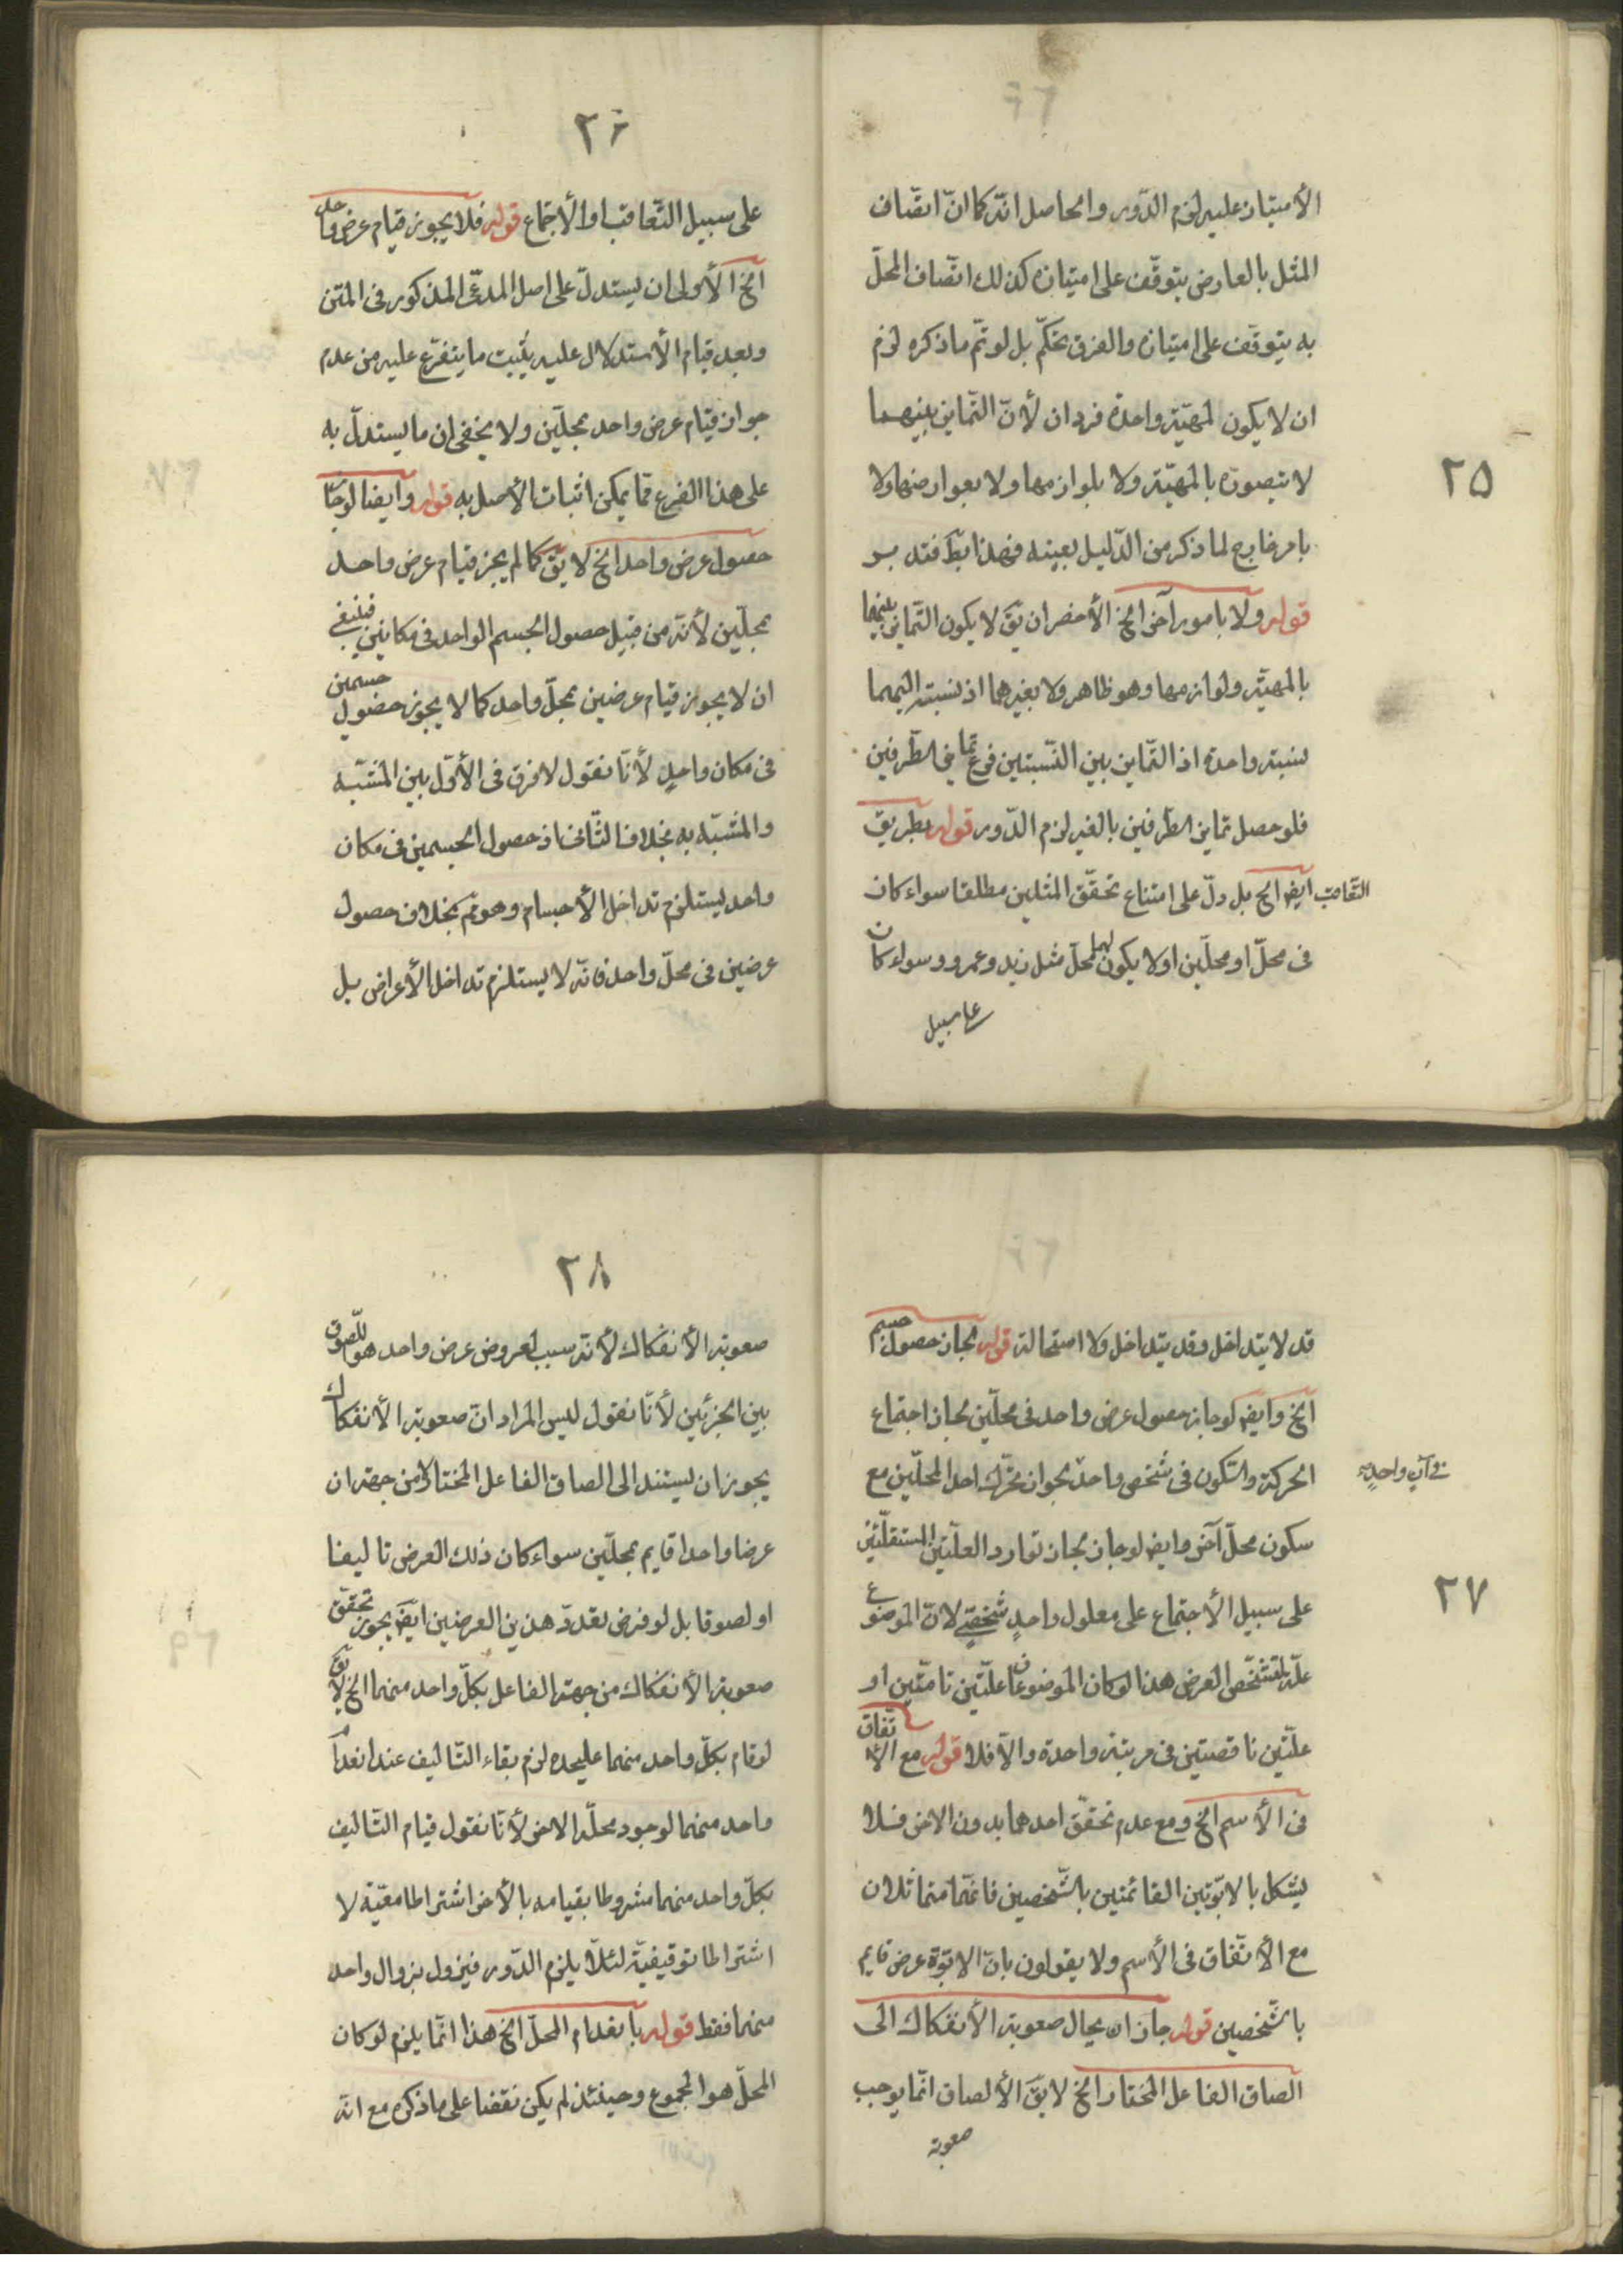 ٢٥
الأمتياز عليه لزم الدّور والحاصل انّه كما انّ اتّصاف
المثل بالعارض يتوقّف على امتيازه كذلك اتّصاف المحلّ
به يتوقّف على امتيازه والفرق تحكّم بل لو تمّ ما ذكره لزم
ان لا يكون لمهيّة واحدة فردان لأنّ التّمايز بينهما
لا يتصوّر بالمهيّة ولا بلوازمها ولا بعوارضها ولا
بامر خارج لما ذكر من الدّليل بعينه فهذا بط فتدبر
قوله ولا بامور آخر الخ الأخصر ان يق لا يكون التّمايز بينهما
بالمهيّة ولوازمها وهو ظاهر ولا بغيرهما اذ نسبته اليهما
نسبة واحدة اذ التّمايز بين النّسبتين فرع تمايز الطّرفين
فلو حصل تمايز الطّرفين بالغير لزم الدّور قوله بطريق
التّعاقب ايض الخ بل دلّ على امتناع تحقّق المثلين مطلقا سواء كان
فى محلّ او محلّين او لا يكون لهما محلّ مثل زيد وعمرو وسواء كان
على سبيل
٢٦
على سبيل التّعاقب او الأجتماع قوله فلا يجوز قيام عرض واحد
الخ الأولى ان يستدلّ على اصل المدّعى المذكور فى المتن
وبعد قيام الأستدلال عليه يثبت ما يتفرّع عليه من عدم
جواز قيام عرض واحد بمحلّين ولا يخفى ان ما يستدلّ به
على هذا الفرع ممّا يمكن اثبات الأصل به قوله وايضا لو جاز
حصول عرض واحد الخ لا يق كما لم يجز قيام عرض واحد
بمحلّين لأنّه من قبيل حصول الجسم الواحد فى مكانين فينبغى
ان لا يجوز قيام عرضين بمحلّ واحد كما لا يجوز حصول جسمين
فى مكان واحدٍ لأنّا نقول لا فرق فى الأوّل بين المشبّه
والمشبّه به بخلاف الثّانى اذ حصول الجسمين فى مكان
واحد يستلزم تداخل الأجسام وهو مم بخلاف حصول
عرضين فى محلّ واحد فانّه لا يستلزم تداخل الأعراض بل
٢٧
قد لا يتداخل وقد يتداخل ولا استحالة قوله لجاز حصول جسم
الخ وايض لو جاز حصول عرض واحد فى محلّين لجاز اجتماع
الحركة والسّكون فى شخص واحد لجواز تحرّك احد المحلّين مع
فى آنٍ واحدٍ
سكون محلّ آخر وايض لو جاز لجاز توارد العلّتين المستقلّتين
على سبيل الأجتماع على معلول واحدٍ شخصّىٍ لانّ الموضوع
علّة لتشخّص العرض هذا لو كان الموضوعان علّتين تامّتين او
علّتين ناقصتين فى مرتبة واحدة والّا فلا قوله مع الأتّفاق
فى الأسم الخ ومع عدم تحقّق احدهما بدون الاخر فلا
يشكل بالابوّتين القائمتين بالشّخصين فانّهما متماثلان
مع الأتّفاق فى الأسم ولا يقولون بانّ الابوّة عرض قايم
بالشّخصين قوله جاز ان يحال صعوبة الأنفكاك الى
الصاق الفاعل المختار الخ لا يق الألصاق انّما يوجب
صعوبة
٢٨
صعوبة الأنفكاك لأنّه سبب لعروض عرض واحد هو اللّصوق
بين الجزئين لأنّا نقول ليس المراد انّ صعوبة الأنفكاك
يجوز ان يستند الى الصاق الفاعل المختار لا من جهة ان
عرضا واحدا قايم بمحلّين سواء كان ذلك العرض تاليفا
او لصوقا بل لو فرض تعدّد هذين العرضين ايض يجوز تحقّق
صعوبة الأنفكاك من جهة الفاعل بكلّ واحد منهما الخ لا يق
لو قام بكلّ واحد منهما عليحده لزم بقاء التّاليف عند انعدام
واحد منهما لوجود محلّه الاخر لأنّا نقول قيام التّاليف
بكلّ واحد منهما مشروطا بقيامه بالأخر اشتراطا معيّة لا
اشتراطا توقيفيّة لئلّا يلزم الدّور فيزول بزوال واحد
منهما فقط قوله بانعدام المحلّ الخ هذا انّما يلزم لو كان
المحلّ هو المجموع وحينئذ لم يكن نقضا على ما ذكره مع انّه